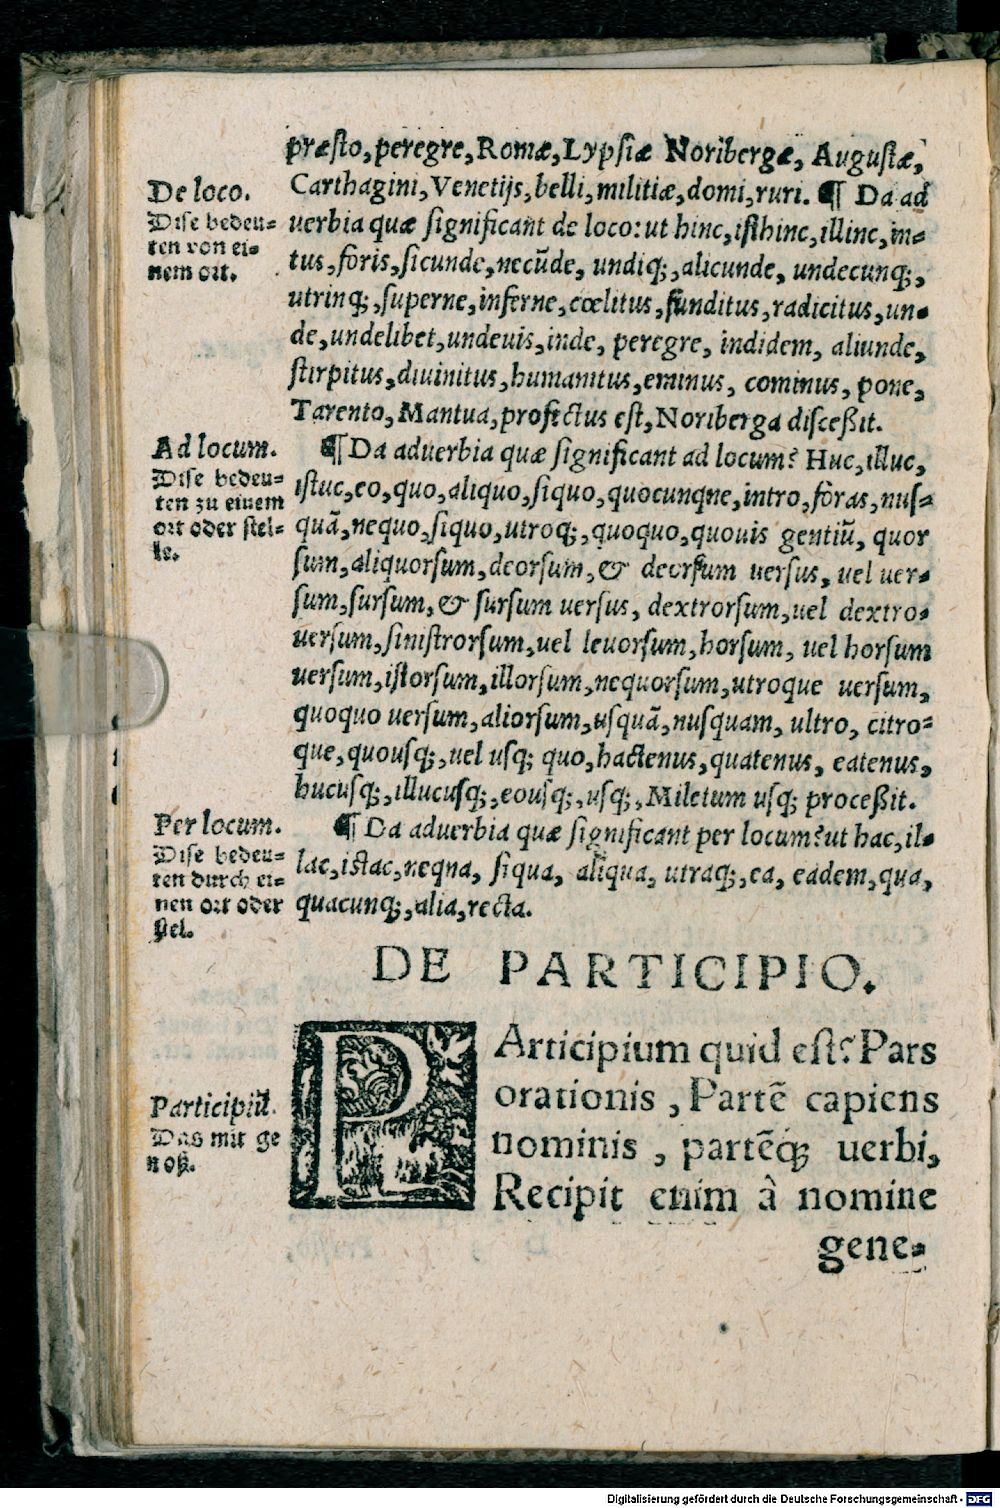 præsto, peregre, Romæ, Lypsiæ Noribergæ, Augustæ,
Carthagini, Venetijs, belli, militiæ, domi, ruri. ¶ Da ad
uerbia quæ significant de loco: ut hinc, isthinc, illinc, in-
tus, foris, sicunde, necũde, undiq;, alicunde, undecunq;,
utrinq;, superne, inferne, cœlitus, funditus, radicitus, un-
de, undelibet, undeuis, inde, peregre, indidem, aliunde,
stirpitus, diuinitus, humanitus, eminus, cominus, pone,
Tarento, Mantua, profectus est, Noriberga disceßit.
De loco.
Dise bedeu-
ten von ei-
nem ort.
¶ Da aduerbia quæ significant ad locum? Huc, illuc,
istuc, eo, quo, aliquo, siquo, quocunque, intro, foras, nus-
quã, nequo, siquo, utroq;, quoquo, quouis gentiũ, quor
sum, aliquorsum, deorsum, & deorsum uersus, uel uer-
sum, sursum, & sursum uersus, dextrorsum, uel dextro-
uersum, sinistrorsum, uel leuorsum, horsum, uel horsum
uersum, istorsum, illorsum, nequorsum, utroque uersum,
quoquo uersum, aliorsum, usquã, nusquam, ultro, citro-
que, quousq;, uel usq; quo, hactenus, quatenus, eatenus,
hucusq;, illucusq;, eousq;, usq;, Miletum usq; proceßit.
Ad locum.
Dise bedeu-
ten zu einem
ort oder stel-
le.
¶ Da aduerbia quæ significant per locum? ut hac, il-
lac, istac, neqna, siqua, aliqua, utraq;, ea, eadem, qua,
quacunq;, alia, recta.
Per locum.
Dise bedeu-
ten durch ei-
nen ort oder
stel.
DE PARTICIPIO.
PArticipium quid est? Pars
orationis, Partẽ capiens
nominis, partẽq; uerbi,
Recipit enim à nomine
Participiũ.
Das mit ge
noß.
gene-
Digitalisierung gefördert durch die Deutsche Forschungsgemeinschaft - DFG